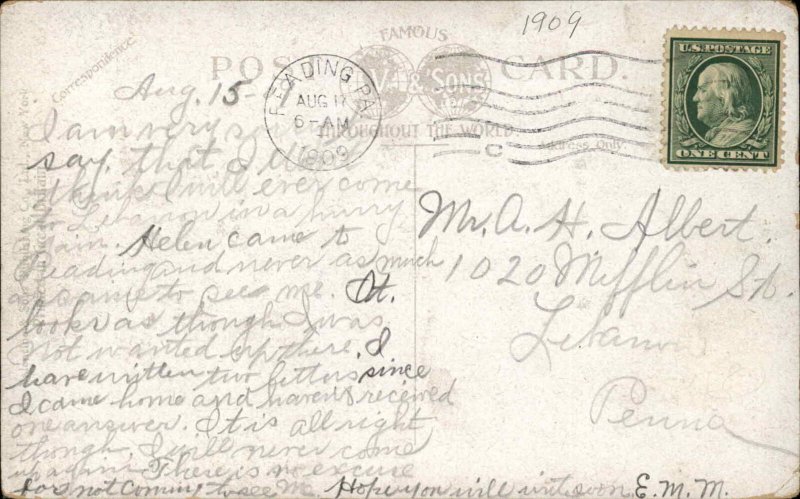 1909
FAMOUS
POST CARD.
& SONS
THROUGHOUT THE WORLD
Correspondence.
Address Only.
READING, PA.
AUG 17
6-AM
1909
C
U.S. POSTAGE
ONE CENT
Aug. 15-
I am very sorry to
say that I don't
think I will ever come
Lebanon in a hurry
again. Helen came to
Reading and never as much
as came to see me. It
looks as though I was
not wanted up there. I
have written two letters since
I came home and haven't received
one answer. It is all right
though. I will never come
up again. There is no excuse
for not coming to see me. Hope you will write soon. E. M. M.
Mr. A. H. Albert.
1020 Mifflin St.
Lebanon
Penna